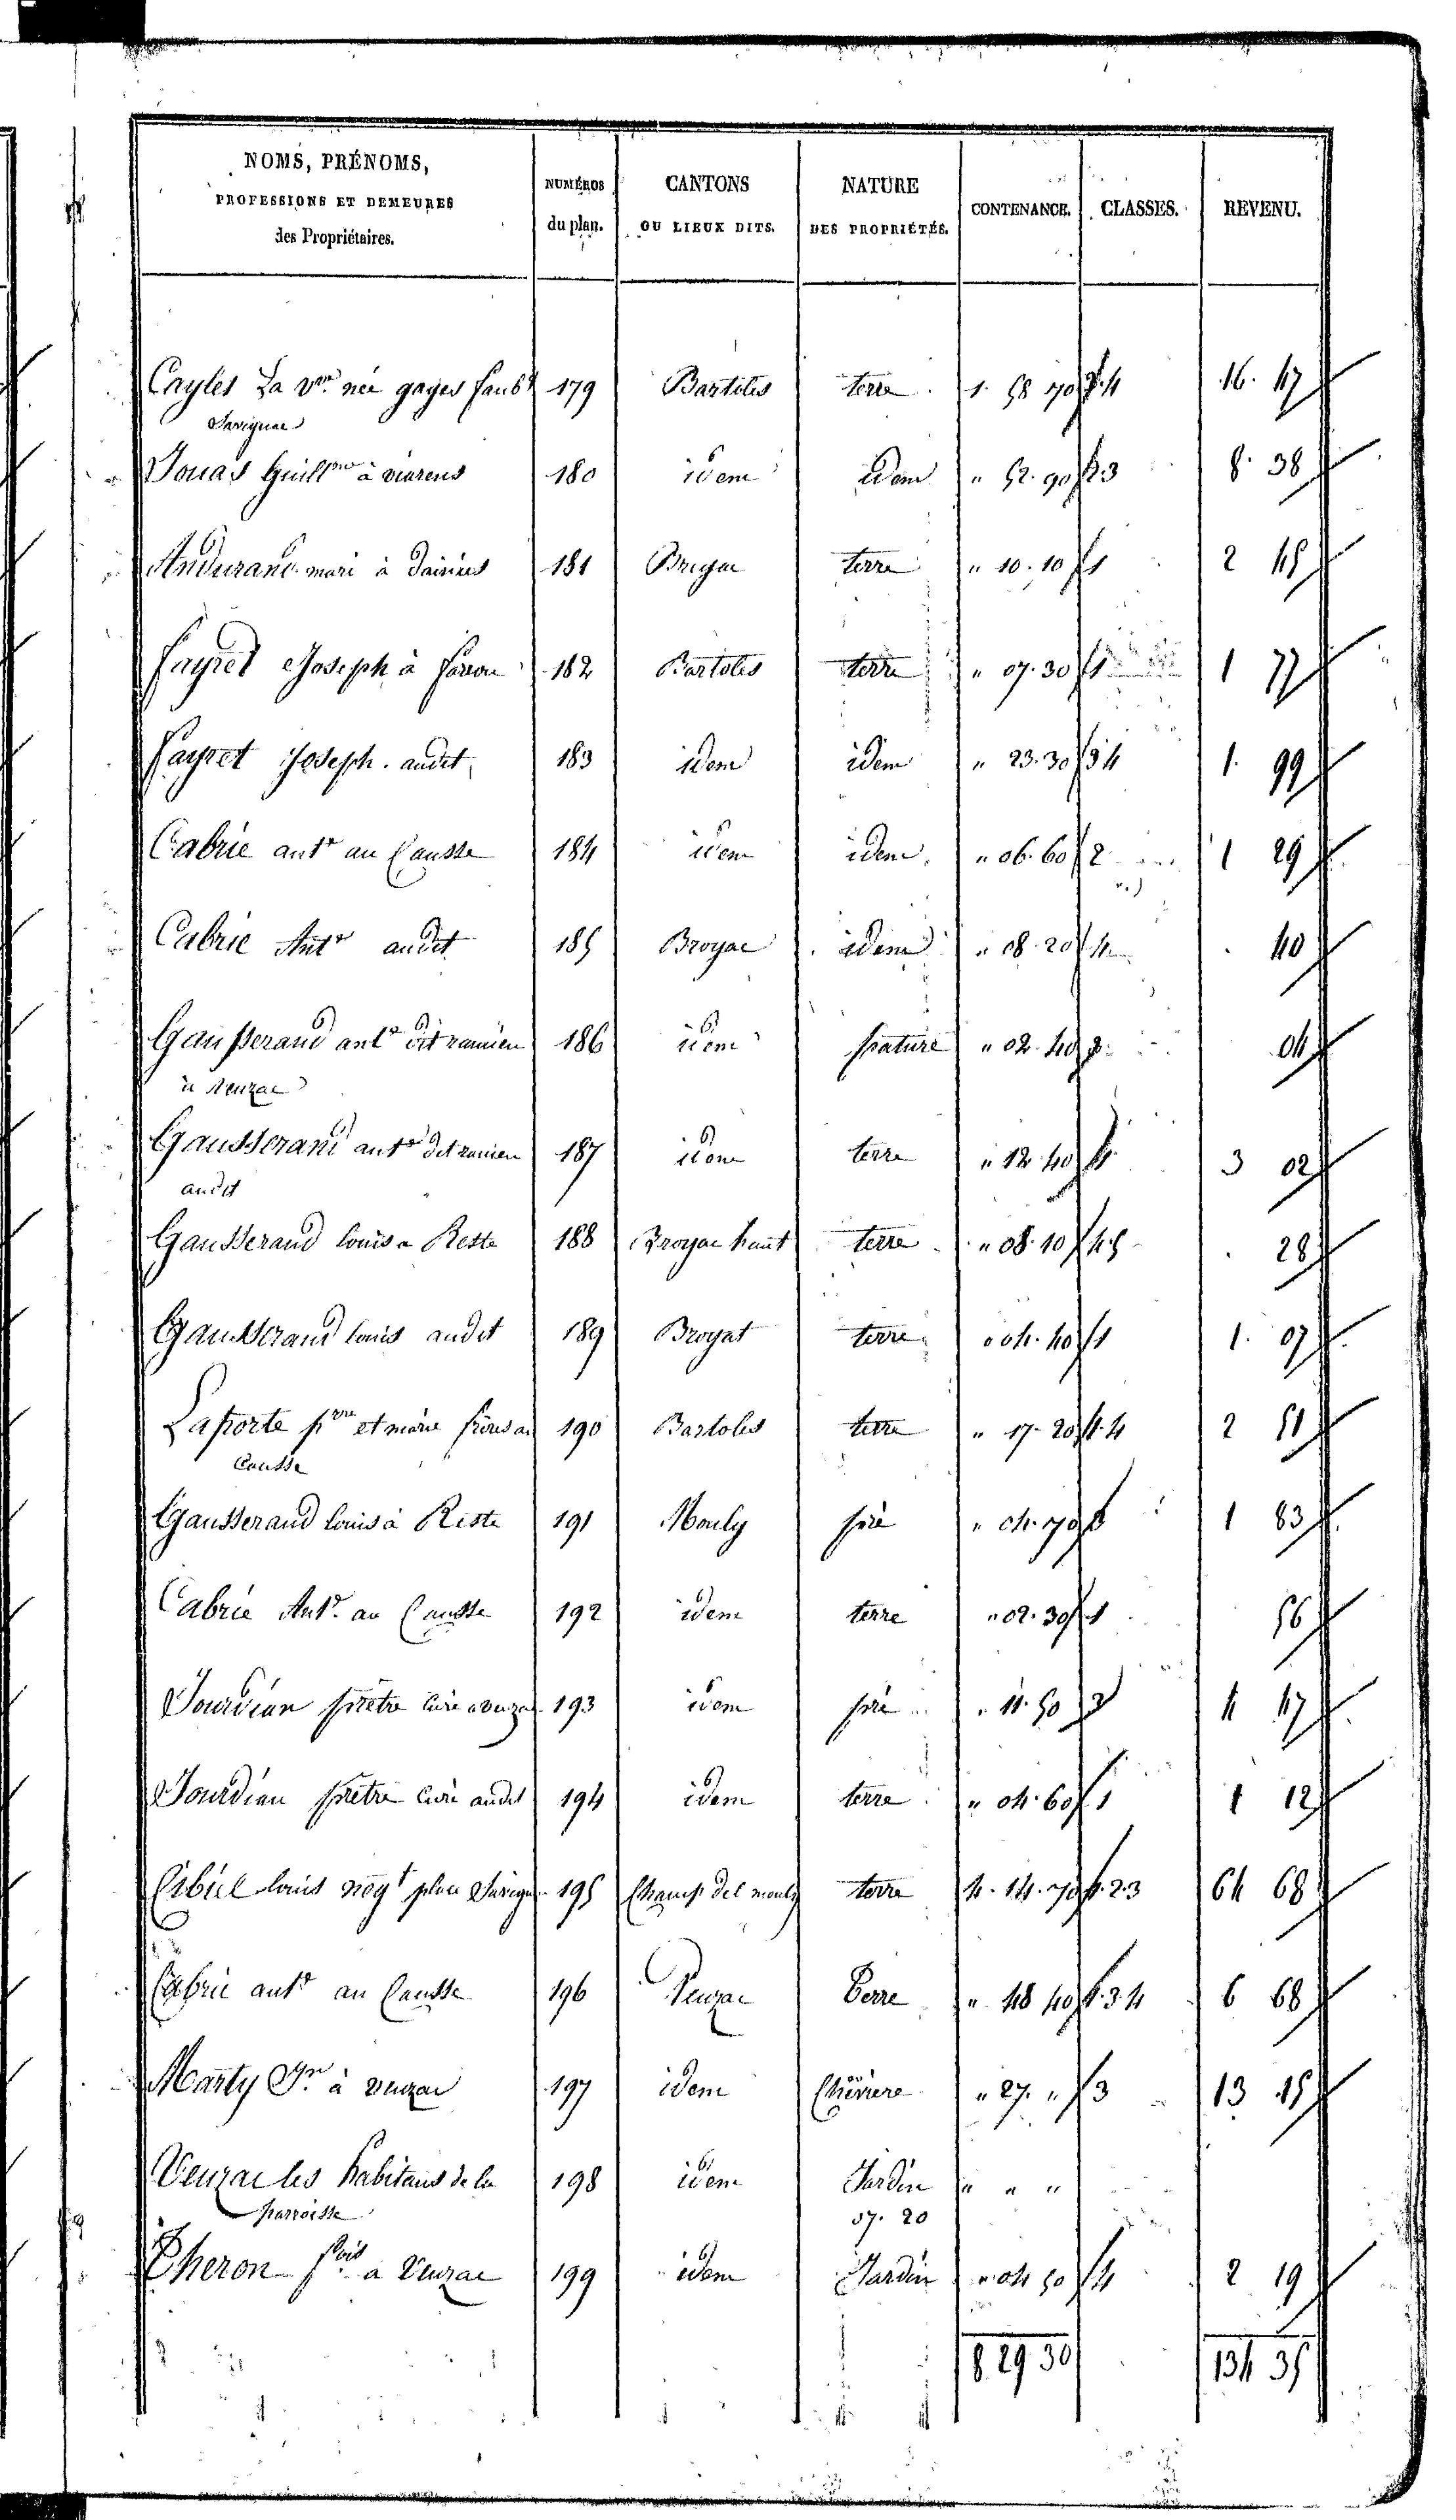 NOMS, PRÉNOMS, PROFESSIONS ET DEMEURES des Propriétaires. NUMÉROS du plan. CANTONS OU LIEUX DITS. NATURE DES PROPRIÉTÉS. CONTENANCE. CLASSES. REVENU.
Cayles La Vve née gayes faubg 179 Bartoles terre 1. 58 70 3.4 16. 47
Savignac
Jouas Guillme à viarens 180 idem idem " 52. 90 2.3 8. 38
Andurand mari à 181 Broyac terre " 10. 10 1 2 45
fayret Joseph à farrou 182 Bartoles terre " 07. 30 1 1 77
fayret Joseph. audit 183 idem idem " 23. 30 3 4 1. 99
Cabrié ante au Causse 184 idem idem " 06. 60 2 1 29
Cabrié Ante audit 185 Broyac idem " 08. 20 4 . 40
Gausserand ante dit ramien 186 idem pature " 02. 40 2 04
à Veuzac
Gausserand ante dit ramien 187 idem terre " 12. 40 1 3 02
audit
Gausserand louis a Reste 188 Broyac haut terre " 08. 10 4.5 . 28
Gausserand louis audit 189 Broyat terre " 04. 40 1 1. 07
Laporte prre et marie frères au 190 Bartoles terre " 17. 20 1.4 2 51
Causse
Gausserand louis à Reste 191 Mouly prè " 04. 70 1 83
Cabrié Ante. au Causse 192 idem terre " 02. 30 1 56
Jourdian prêtre curé a veuzac 193 idem prè " 11. 50 2 4 47
Jourdian prêtre curé audit 194 idem terre " 04. 60 1 1 12
Cibiel louis negt place Savignac 195 Champ del mouly terre 4. 14. 70 1.2.3 64 68
Cabrié ante au Causse 196 Veuzac Terre " 48 40 1.3.4 6 68
Marty Jn à veuzac 197 idem Chëviere " 27. " 3 13 15
Veuzac les habitans de la 198 idem Jardin " " "
parroisse 07. 20
Theron fois à Veuzac 199 idem Jardin " 04 50 4 2 19
8 29 30 134 35